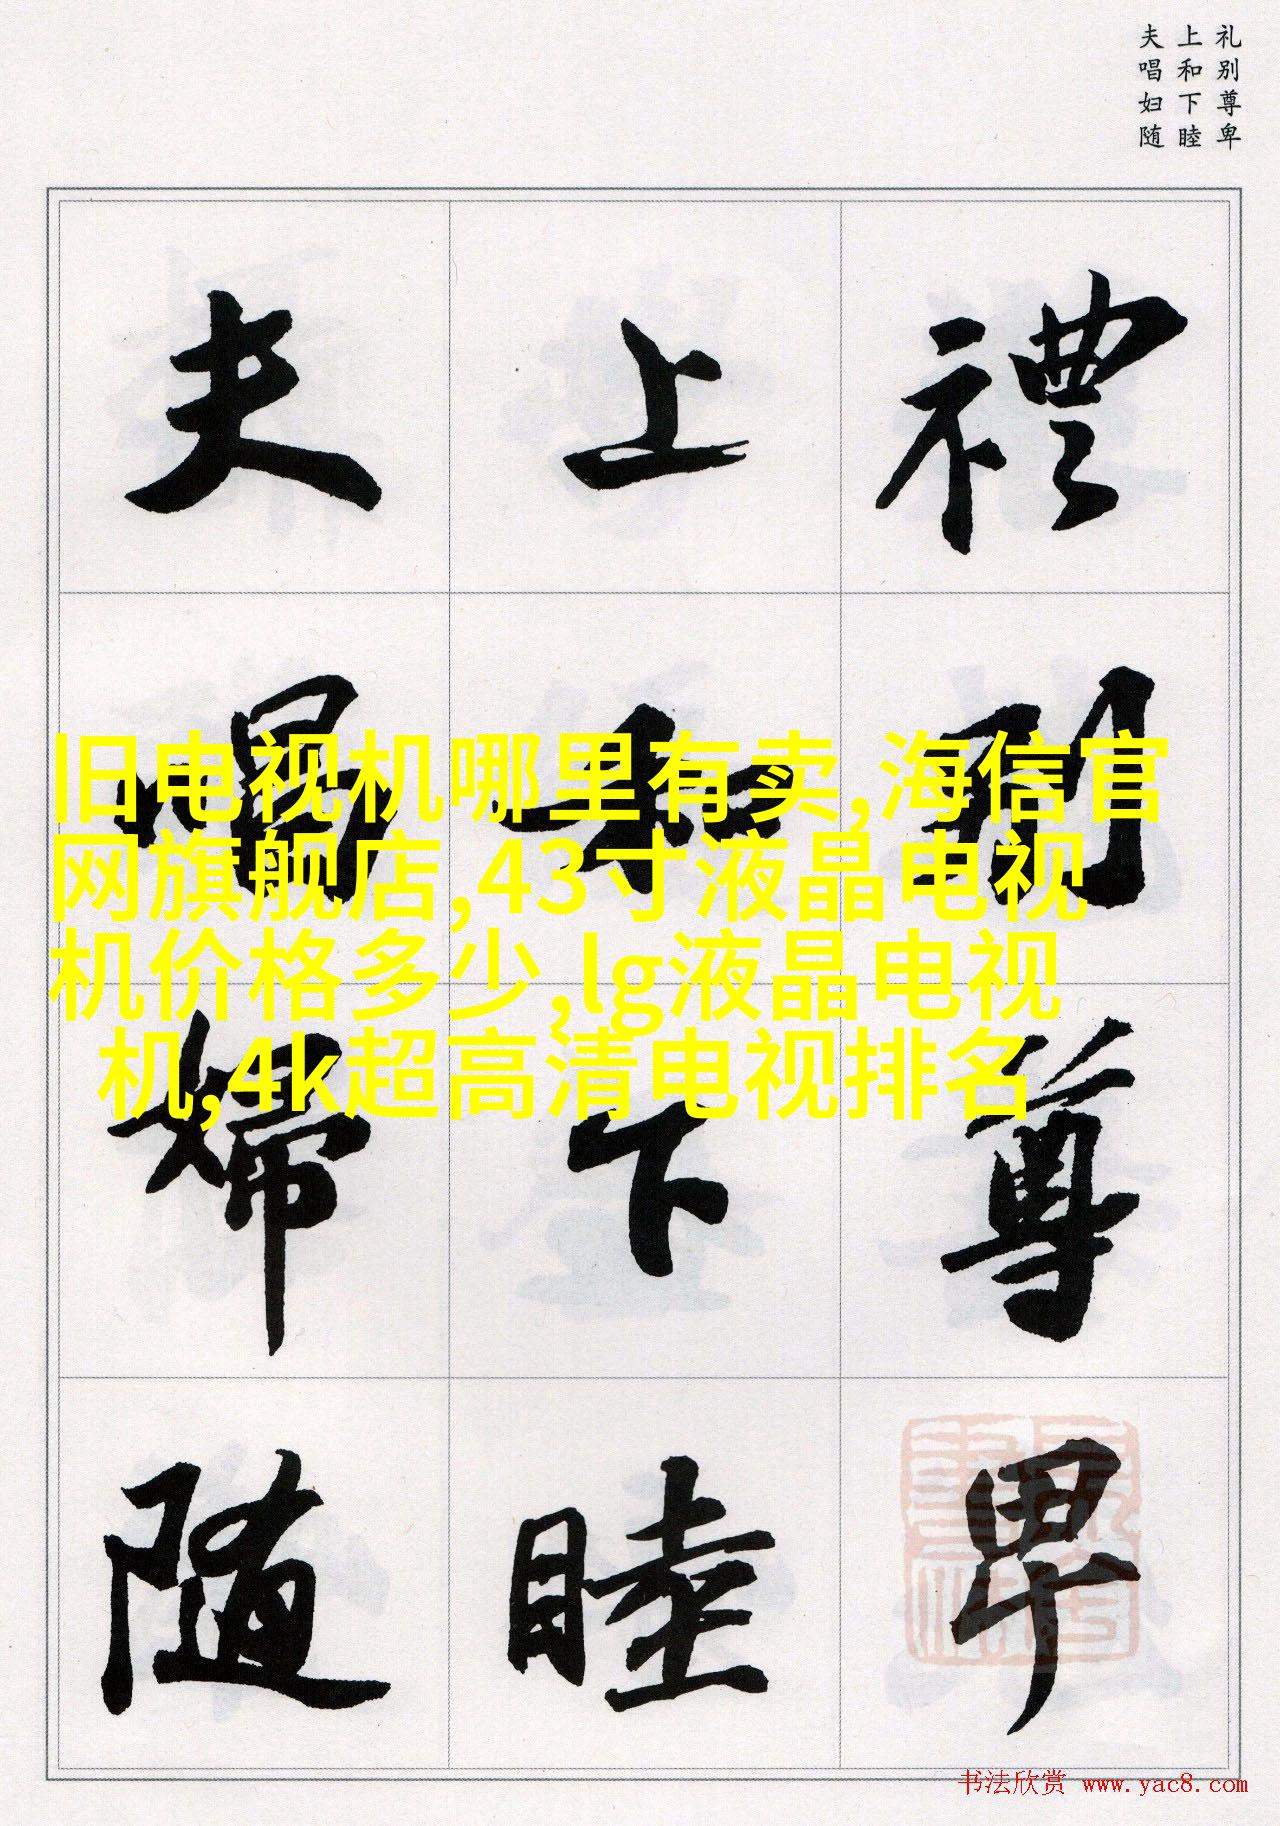 礼别尊卑
上和下睦
夫唱妇随
禮别尊卑
上和下睦
夫唱婦随
旧电视机哪里有卖,海信官
网旗舰店,43寸液晶电视
机价格多少,lg液晶电视
机,4k超高清电视排名
书法欣赏 www.yac8.com